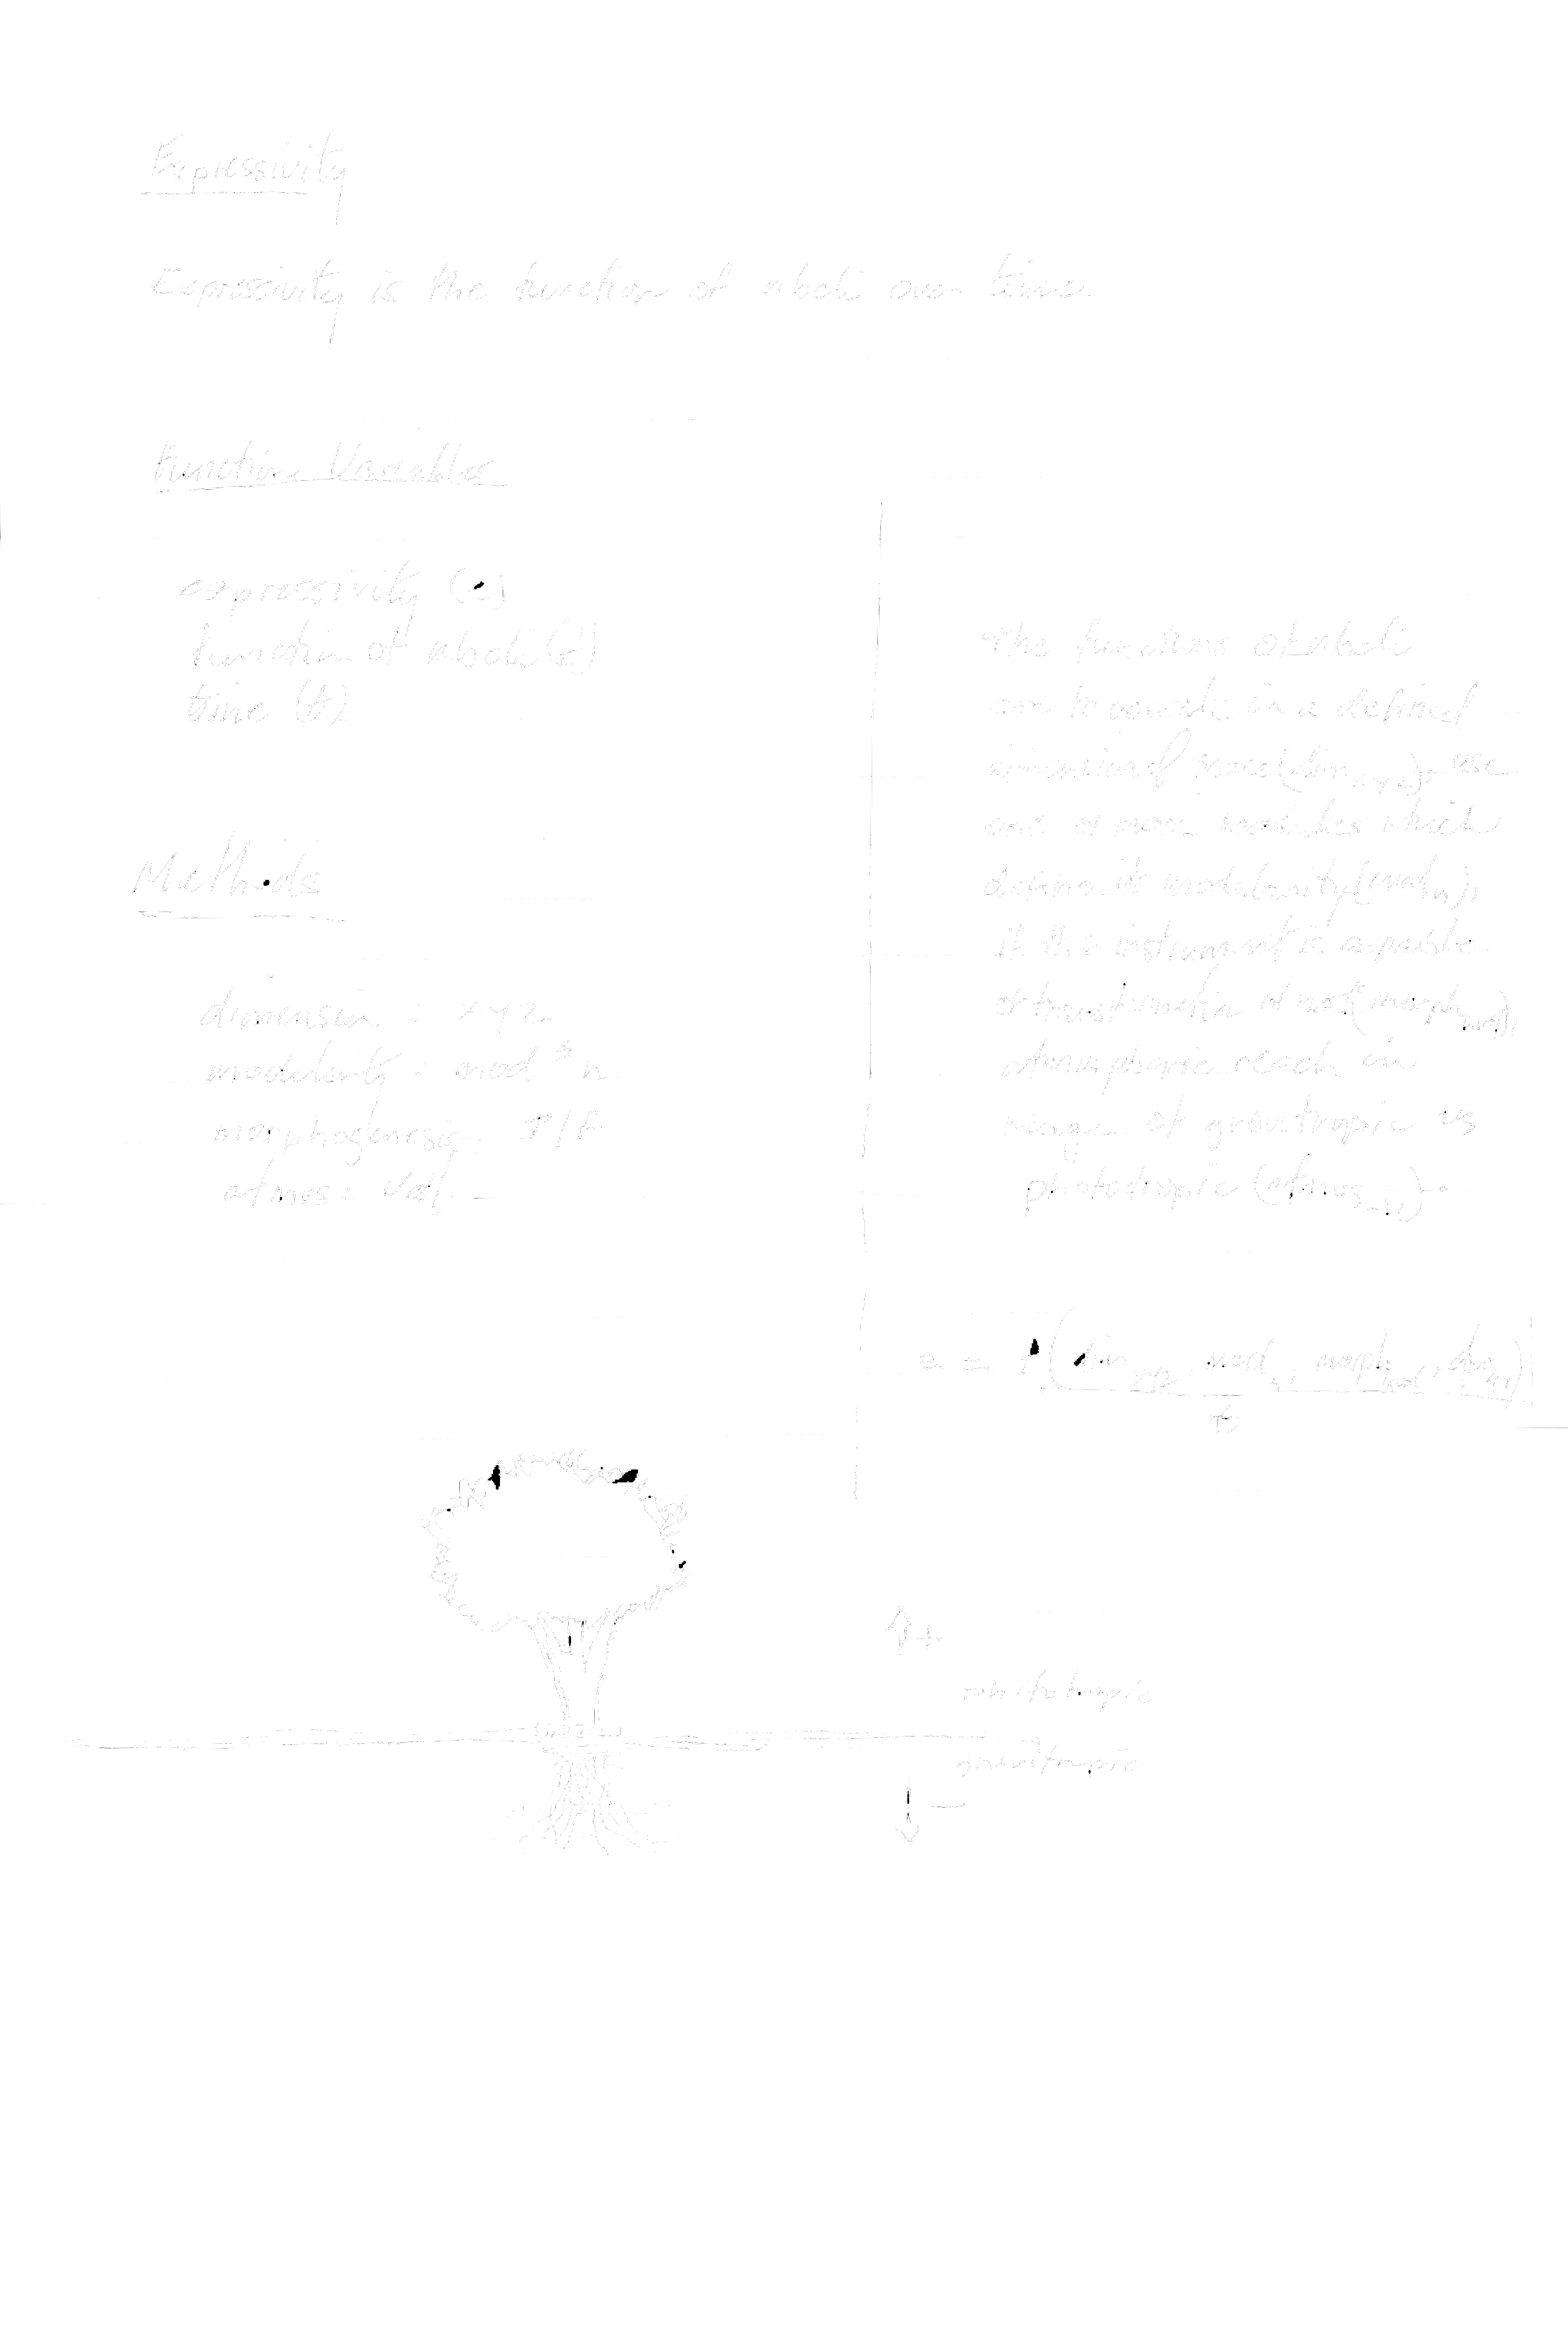 Expressivity
Expressivity is the function of abeli over time.
Function Variables
expressivity (e)
function of abeli (f)
time (t)
Methods
dimension : x y z
modularity : mod * n
morphogenesis : T/F
atmos : Val.
The functions of abeli
in a defined
dimensional space (dim xyz), use
one or more which
define it modularity (mod n),
if the instrument is capable
of transformation or not (morph bool),
atmospheric reach in
range of gravitropic vs
photodropic (atmos -1,1).
e = f (dim xyz, mod n, morph bool,
t
+
phototropic
gravitropic
-